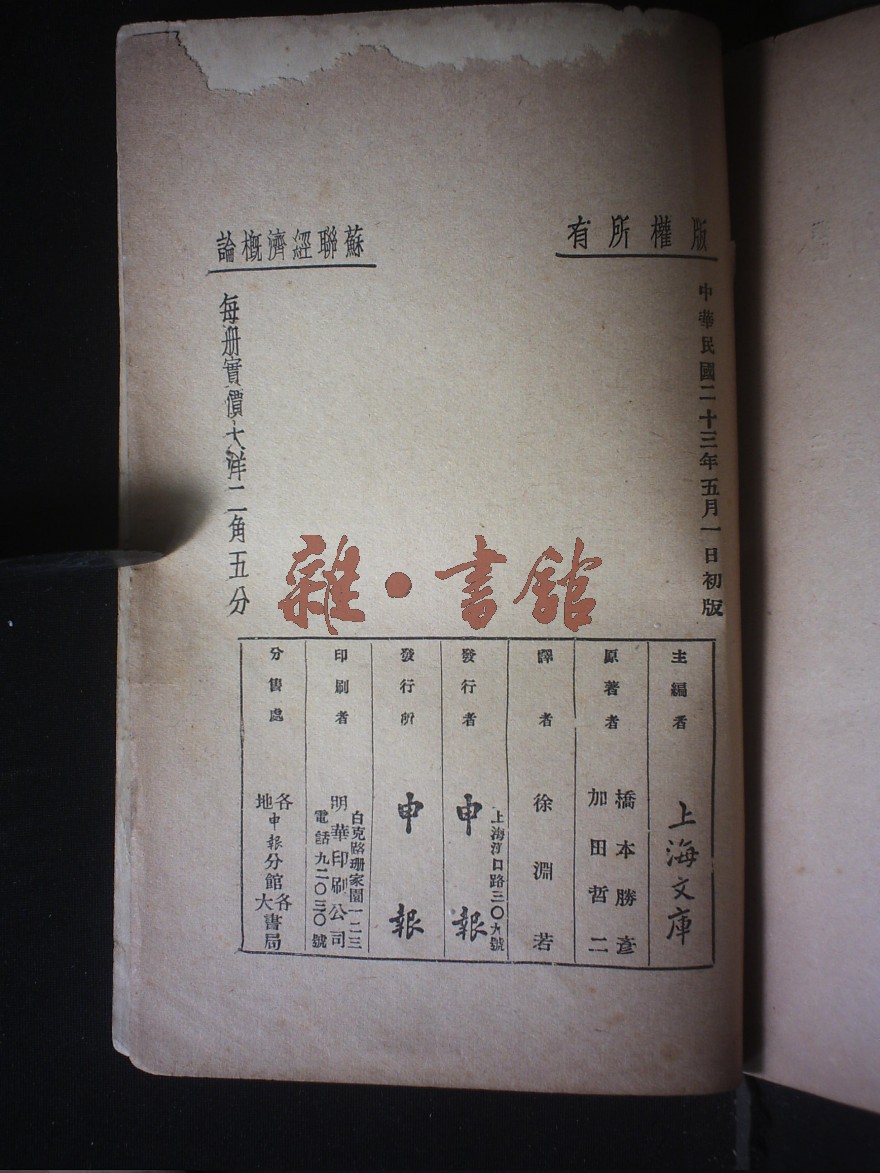 版權所有
中華民國二十三年五月一日初版
蘇聯經濟概論
每册實價大洋二角五分
雜·書舘
主編者
上海文庫
原著者
橋本勝彥
加田哲二
譯者
徐淵若
發行者
上海漢口路三〇九號
申報
發行所
申報
印刷者
白克路珊家園一二三
明華印刷公司
電話九二〇三〇號
分售處
各地申報分館各大書局